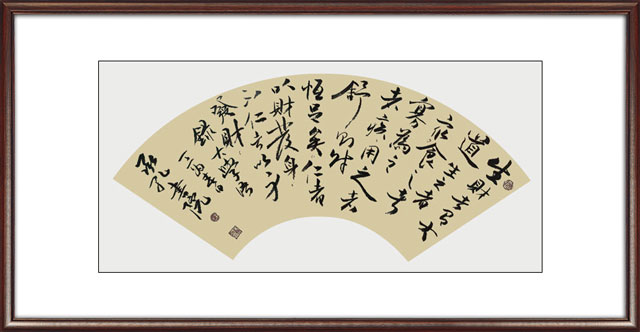 生財有大
道生之者
衆食之者
寡為之者
疾用之者
舒則財
恆足矣仁者
以財發身
不仁者以身
發財大學句
錄丁酉春
書院